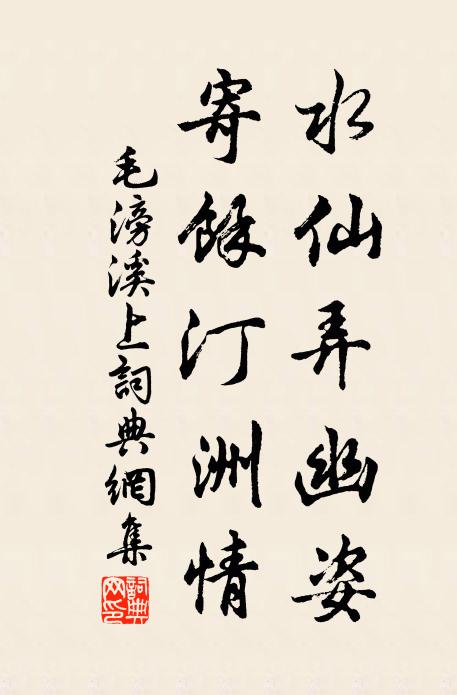 水仙弄幽姿
寄餘汀洲情
毛滂溪上詞典網集
詞典網印